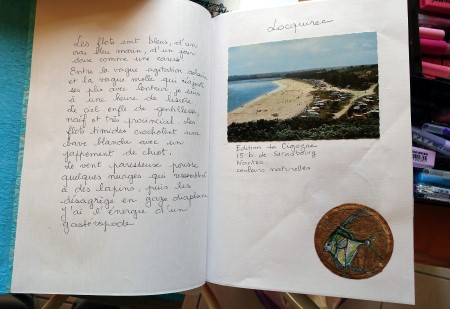 Les flots sont bleus, d'un
vrai bleu marin, d'un jour
doux comme une caresse
Entre la vague agitation
et la vague molle qui
ses plis avec lenteur, je suis
à une heure de lisière
Le ciel enfle de gentillesse,
naïf et très provincial. Les
flots timides crachotent une
bave blanche avec un
jappement de chiot.
Le vent paresseux pousse
quelques nuages qui ressemblent
à des lapins, puis les
désagrège en gaze diaphane
j'ai l'énergie d'un
gastéropode
Locquirec
Edition La Cigogne
15 b. de
Nantes
couleurs naturelles